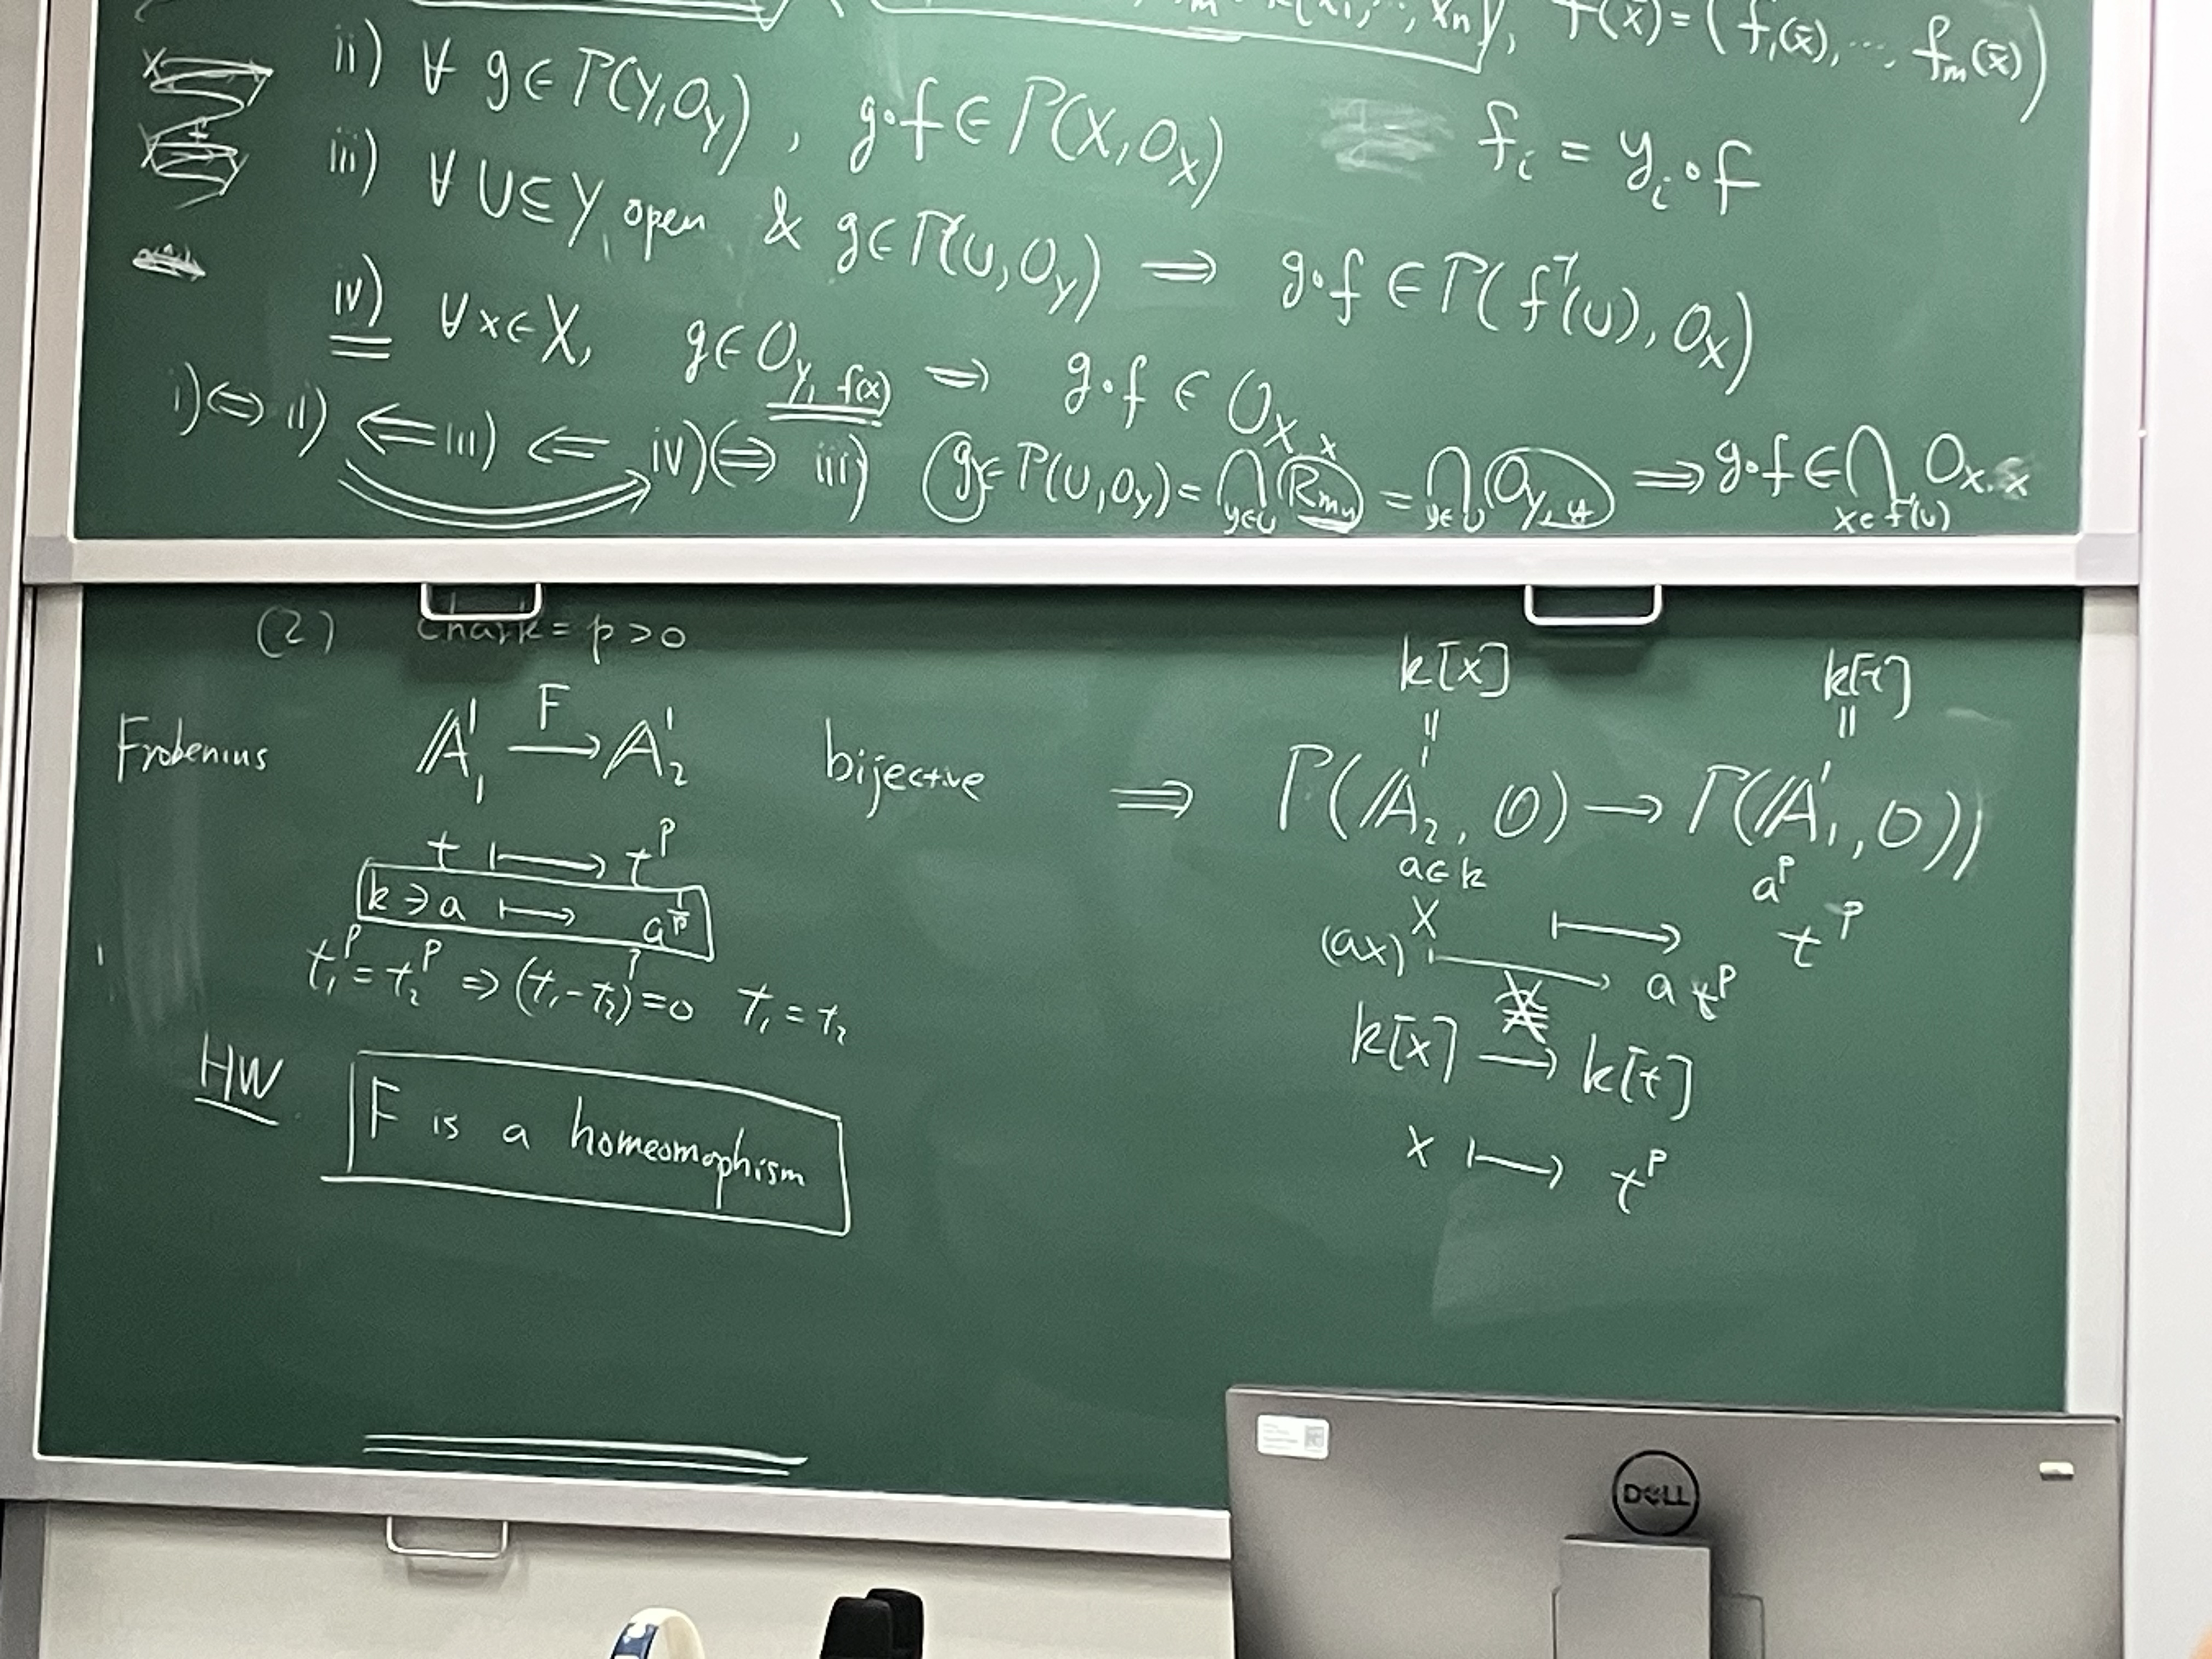 f(x̄) = (f₁(x̄), ... fₘ(x̄))
ii) ∀ g ∈ Γ(Y, O_Y), g∘f ∈ Γ(X, O_X)
fᵢ = yᵢ∘f
iii) ∀ U ⊆ Y, open & g ∈ Γ(U, O_Y) ⟹ g∘f ∈ Γ(f⁻¹(U), O_X)
iv) ∀ x ∈ X, g ∈ O_{Y, f(x)} ⟹ g∘f ∈ O_{X, x}
i) ⟺ ii) ⟸ iii) ⟸ iv) (⟹ iii) g ∈ Γ(U, O_Y) = ⋂_{y∈U} R_{m_y} = ⋂_{y∈U} O_{Y, y} ⟹ g∘f ∈ ⋂_{x∈f⁻¹(U)} O_{X, x}
(2) Char k = p > 0
k[x] k[t]
|| ||
Frobenius 𝔸¹₁ —F→ 𝔸¹₂ bijective ⟹ Γ(𝔸¹₂, O) → Γ(𝔸¹₁, O))
t ↦ t^p
a ∈ k a^p
k ∋ a ↦ a^{1/p}
x ↦ t^p
(ax) ↦ a t^p
t₁^p = t₂^p ⟹ (t₁ - t₂)^p = 0 t₁ = t₂
k[x] → k[t]
HW F is a homeomophism
x ↦ t^p
DELL